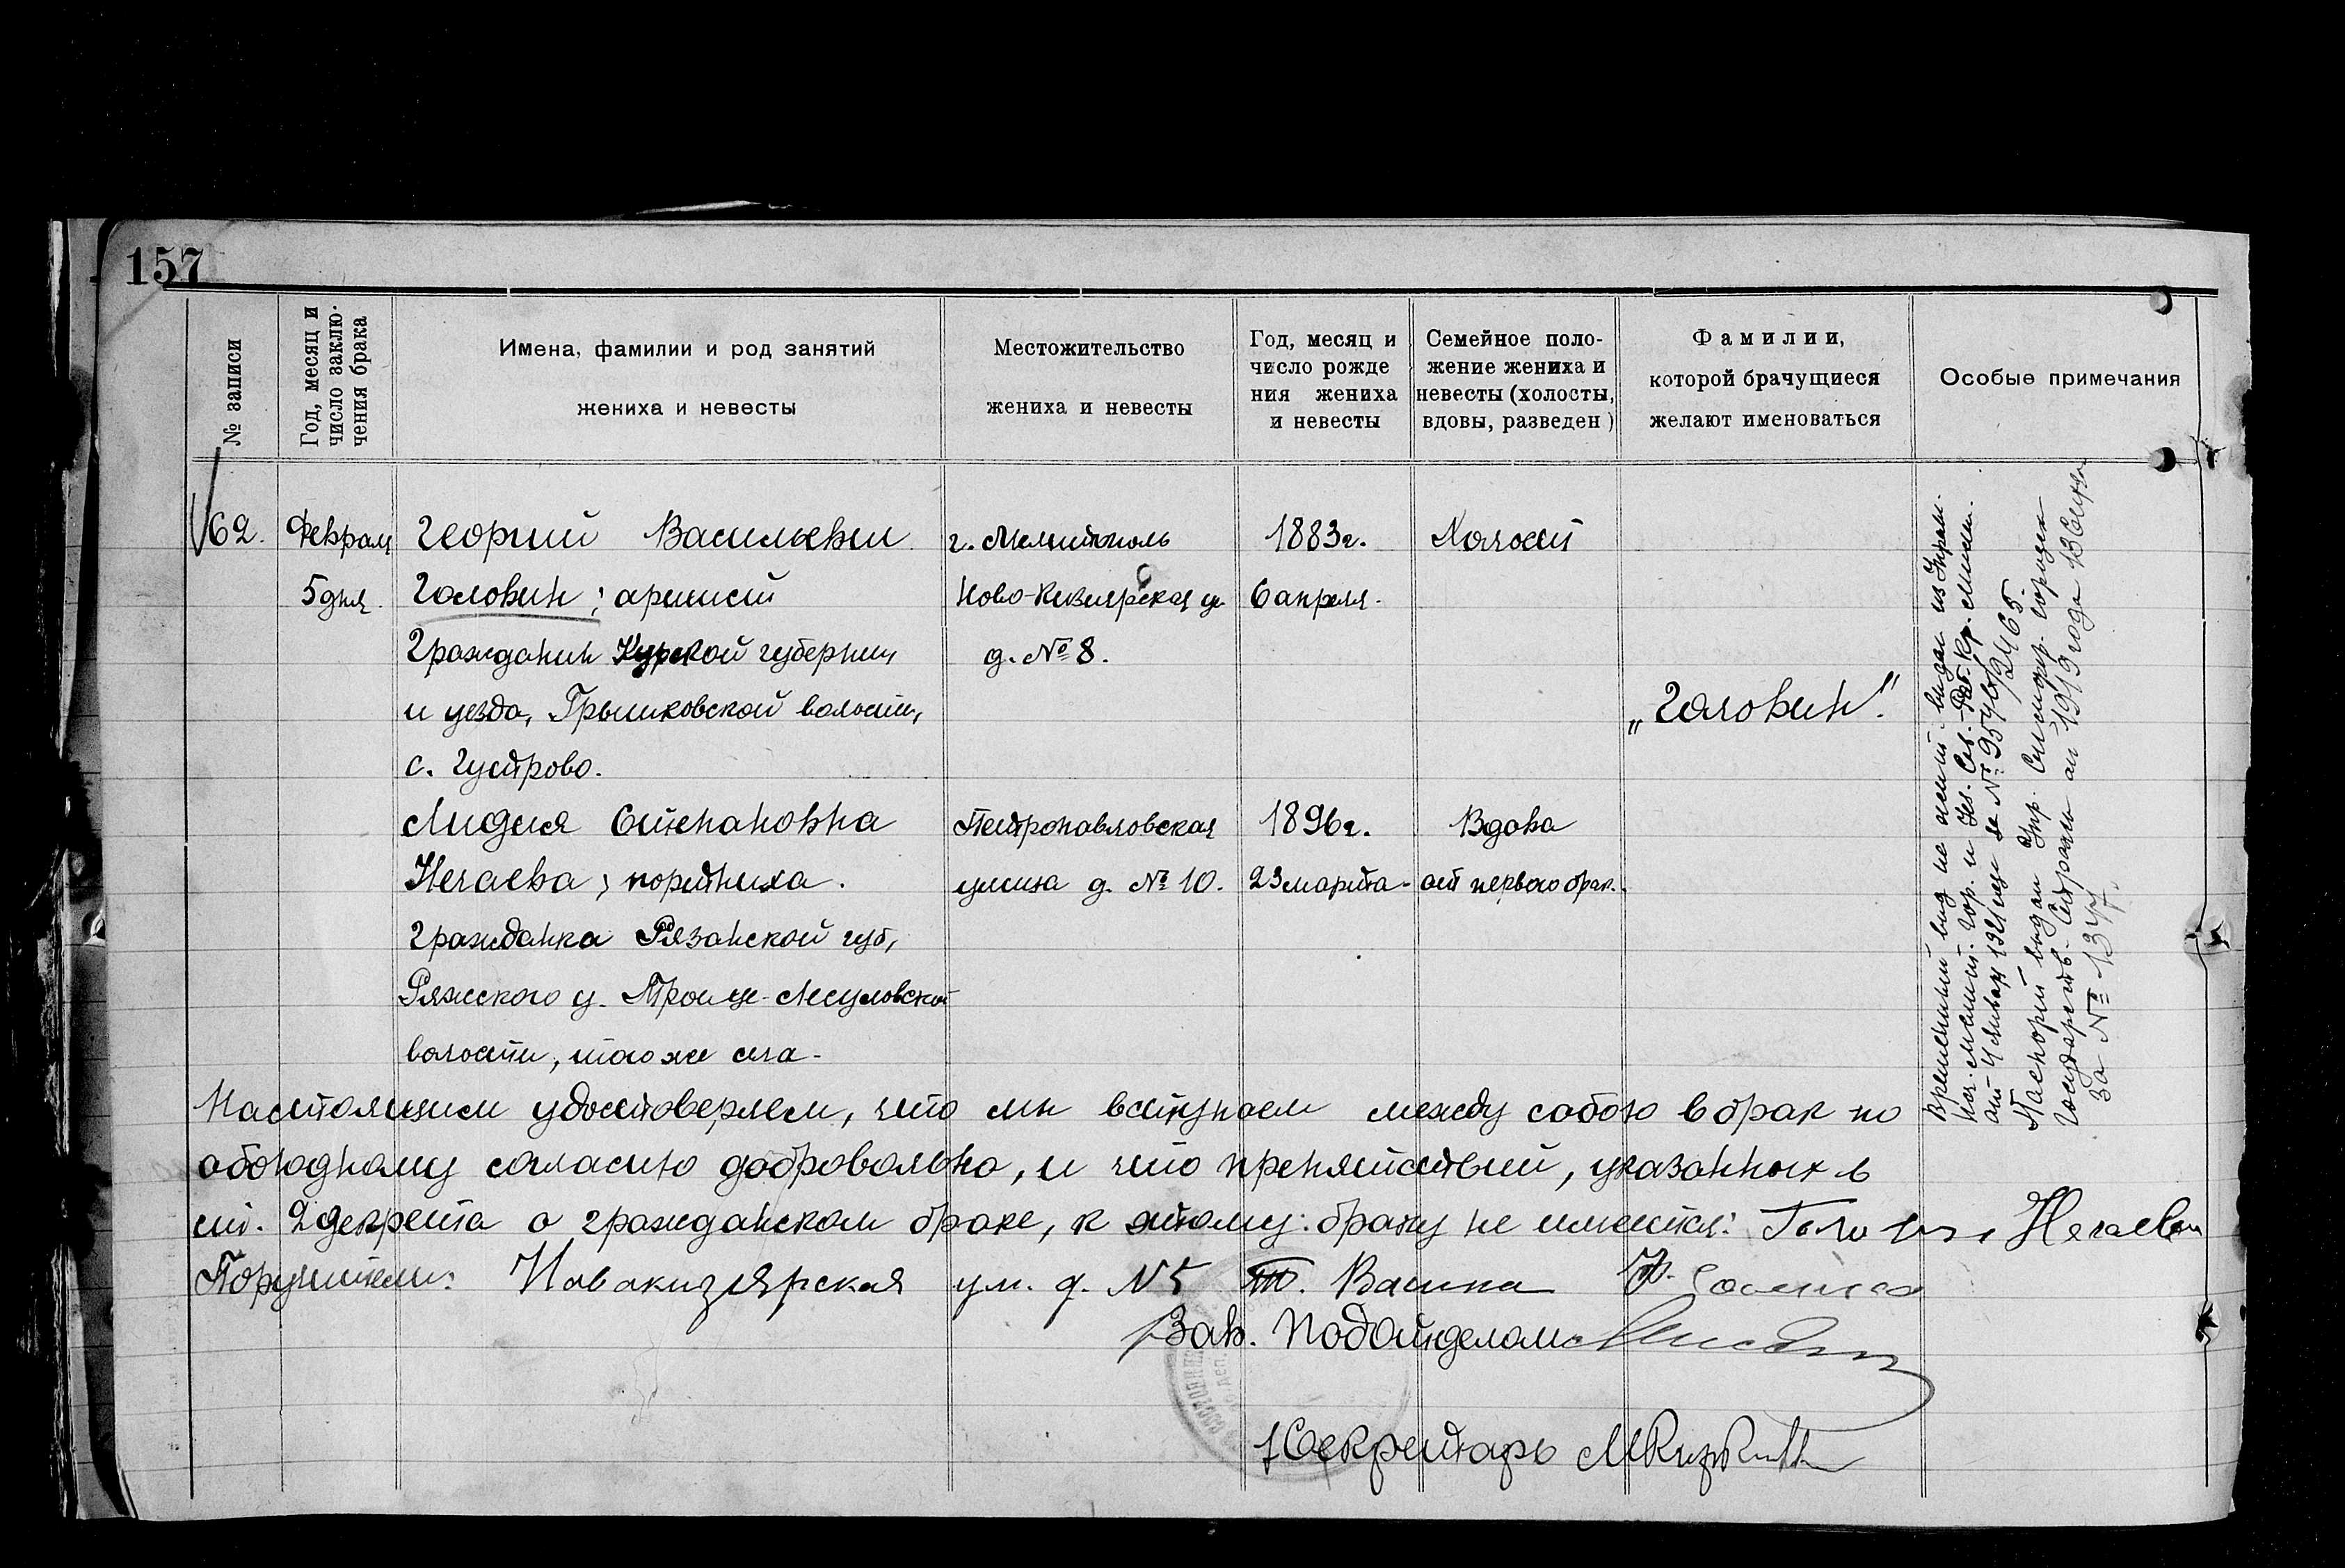 157
№ записи
Год, месяц и
число заклю-
чения брака
Имена, фамилии и род занятий
жениха и невесты
Местожительство
жениха и невесты
Год, месяц и
число рожде
ния жениха
и невесты
Семейное поло-
жение жениха и
невесты (холосты,
вдовы, разведен)
Фамилии,
которой брачущиеся
желают именоваться
Особые примечания
62.
Февраля
5 дня.
Георгий Васильевич
Головин; артист
Гражданин Курской губернии
и уезда, волости,
с.
г. Мелитополь
Ново-Кизиярская ул.
д. № 8.
1883 г.
6 апреля.
Холост
„Головин".
Лидия Степановна
Нечаева; портниха.
гражданка Рязанской губ,
Ряжского у. Троице-Лесуновской
волости, того же села.
Петропавловская
улица д. № 10.
1896 г.
23 марта.
Вдова
от первого брак.
Временный вид на жит. выдан из Управ.
от 4 января 1921 года за № 9546/2465.
Паспорт выдан Упр. Симфер. городск.
Государств. от 1919 года
за № 1347.
Настоящим удостоверяем, что мы вступаем между собою в брак по
обоюдному согласию добровольно, и что препятствий, указанных в
ст. 2 декрета о гражданском браке, к этому браку не имеется: Нечаева
Поручители: Новакизярская ул. д. N 5 Т. Васина
Зав. Подотделом
Секретарь